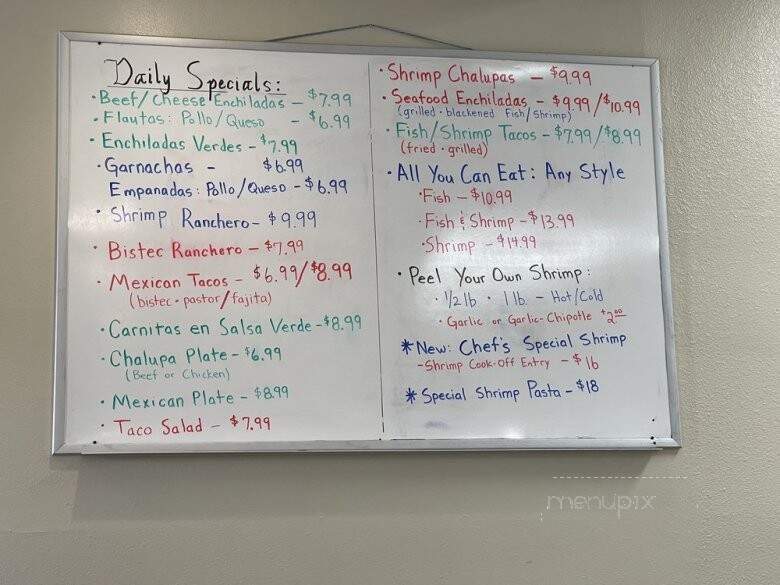 Daily Specials:
· Beef/Cheese Enchiladas - $7.99
· Flautas: Pollo/Queso - $6.99
· Enchiladas Verdes - $7.99
· Garnachas - $6.99
Empanadas: Pollo/Queso - $6.99
· Shrimp Ranchero - $9.99
· Bistec Ranchero - $7.99
· Mexican Tacos - $6.99/$8.99
(bistec · pastor/fajita)
· Carnitas en Salsa Verde - $8.99
· Chalupa Plate - $6.99
(Beef or Chicken)
· Mexican Plate - $8.99
· Taco Salad - $7.99
· Shrimp Chalupas - $9.99
· Seafood Enchiladas - $9.99/$10.99
(grilled · blackened Fish/Shrimp)
· Fish/Shrimp Tacos - $7.99/$8.99
(fried · grilled)
· All You Can Eat: Any Style
· Fish - $10.99
· Fish & Shrimp - $13.99
· Shrimp - $14.99
· Peel Your Own Shrimp:
· 1/2 lb · 1 lb - Hot/Cold
· Garlic or Garlic-Chipotle +2.00
* New: Chef's Special Shrimp
- Shrimp Cook-Off Entry - $16
* Special Shrimp Pasta - $18
menupix